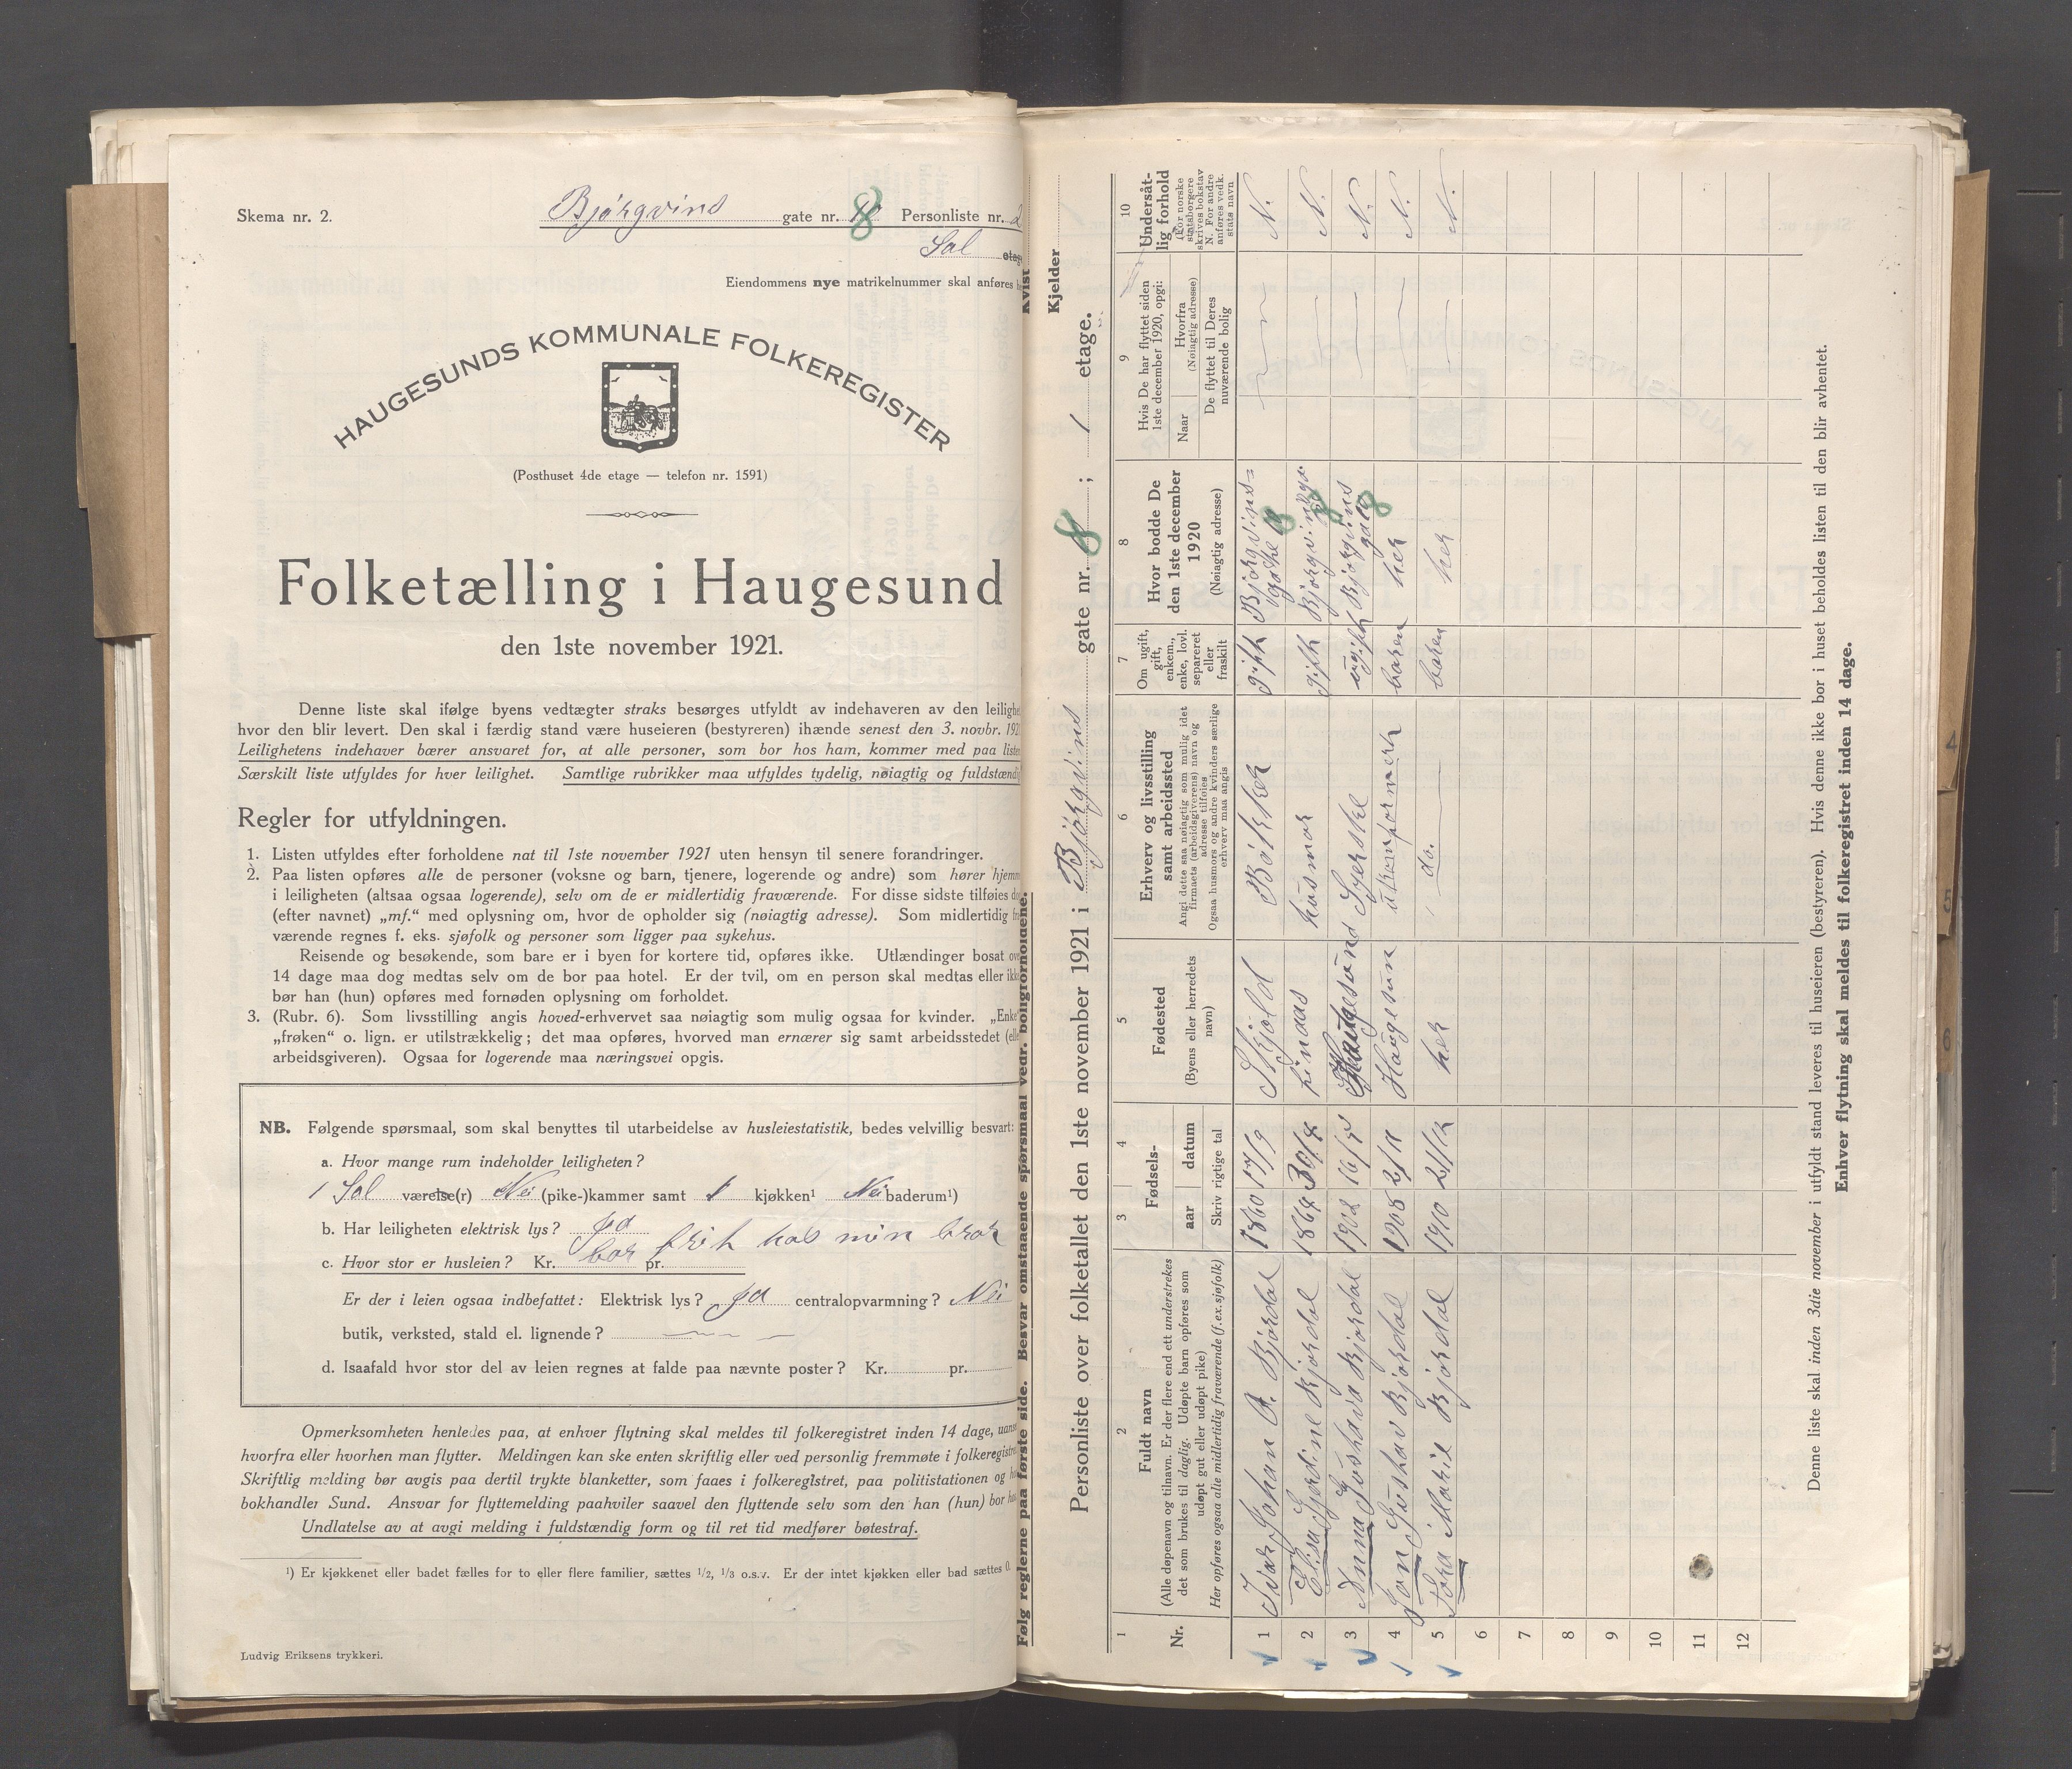 Skema nr. 2.
Bjørgvins gate nr. 8 Personliste nr. 2
Sal etage
Eiendommens nye matrikelnummer skal anføres
HAUGESUNDS KOMMUNALE FOLKEREGISTER
(Posthuset 4de etage — telefon nr. 1591)
Folketælling i Haugesund
den 1ste november 1921.
Denne liste skal ifølge byens vedtægter straks besørges utfyldt av indehaveren av den leilighet
hvor den blir levert. Den skal i færdig stand være huseieren (bestyreren) ihænde senest den 3. novbr. 1921
Leilighetens indehaver bærer ansvaret for, at alle personer, som bor hos ham, kommer med paa listen
Særskilt liste utfyldes for hver leilighet. Samtlige rubrikker maa utfyldes tydelig, nøiagtig og fuldstændig
Regler for utfyldningen.
1. Listen utfyldes efter forholdene nat til 1ste november 1921 uten hensyn til senere forandringer.
2. Paa listen opføres alle de personer (voksne og barn, tjenere, logerende og andre) som hører hjemme
i leiligheten (altsaa ogsaa logerende), selv om de er midlertidig fraværende. For disse sidste tilføies da
(efter navnet) „mf.“ med oplysning om, hvor de opholder sig (nøiagtig adresse). Som midlertidig fra
værende regnes f. eks. sjøfolk og personer som ligger paa sykehus.
Reisende og besøkende, som bare er i byen for kortere tid, opføres ikke. Utlændinger bosat over
14 dage maa dog medtas selv om de bor paa hotel. Er der tvil, om en person skal medtas eller ikke
bør han (hun) opføres med fornøden oplysning om forholdet.
3. (Rubr. 6). Som livsstilling angis hoved-erhvervet saa nøiagtig som mulig ogsaa for kvinder. „Enke“
„frøken“ o. lign. er utilstrækkelig; det maa opføres, hvorved man ernærer sig samt arbeidsstedet (eller
arbeidsgiveren). Ogsaa for logerende maa næringsvei opgis.
NB. Følgende spørsmaal, som skal benyttes til utarbeidelse av husleiestatistik, bedes velvillig besvart:
a. Hvor mange rum indeholder leiligheten?
1 Sal værelse(r) Nei (pike-)kammer samt 1 kjøkken¹ Nei baderum¹)
b. Har leiligheten elektrisk lys? Ja
c. Hvor stor er husleien? Kr. bor pr. frit hos min bror
Er der i leien ogsaa indbefattet: Elektrisk lys? Ja centralopvarmning? Nei
butik, verksted, stald el. lignende?
d. Isaafald hvor stor del av leien regnes at falde paa nævnte poster? Kr. pr.
Opmerksomheten henledes paa, at enhver flytning skal meldes til folkeregistret inden 14 dage, uanset
hvorfra eller hvorhen man flytter. Meldingen kan ske enten skriftlig eller ved personlig fremmøte i folkeregistret
Skriftlig melding bør avgis paa dertil trykte blanketter, som faaes i folkeregistret, paa politistationen og hos
bokhandler Sund. Ansvar for flyttemelding paahviler saavel den flyttende selv som den han (hun) bor hos
Undlatelse av at avgi melding i fuldstændig form og til ret tid medfører bøtestraf.
¹) Er kjøkkenet eller badet fælles for to eller flere familier, sættes 1/2, 1/3 o.s.v. Er der intet kjøkken eller bad sættes 0.
Ludvig Eriksens trykkeri.
Følg reglerne paa første side. Besvar omstaaende spørsmaal vedr. boligforholdene.
Kvist
Kjelder
Personliste over folketallet den 1ste november 1921 i Bjørgvins gate nr. 8 ; 1 etage.
1 2 3 4 5 6 7 8 9 10
Nr.
Fuldt navn
(Alle døpenavn og tilnavn. Er der flere end ett understrekes
det som brukes til daglig. Udøpte barn opføres som
udøpt gut eller udøpt pike)
Her opføres ogsaa alle midlertidig fraværende (f.ex. sjøfolk)
Fødsels-
aar datum
Skriv rigtige tal
Fødested
(Byens eller herredets
navn)
Erhverv og livsstilling
samt arbeidssted
Angi dette saa nøiagtig som mulig idet
firmaets (arbeidsgiverens) navn og
adresse tilføies
Ogsaa husmors og andre kvinders særlige
erhverv maa angis
Om ugift,
gift,
enkem.,
enke, lovl.
separeret
eller
fraskilt
Hvor bodde De
den 1ste december
1920
(Nøiagtig adresse)
Hvis De har flyttet siden
1ste december 1920, opgi:
Naar
Hvorfra
(Nøiagtig adresse)
De flyttet til Deres
nuværende bolig
Undersåt-
lig forhold
(For norske
statsborgere
skrives bokstav
N. For andre
anføres vedk.
stats navn
1 Ivar Johan A. Bjørdal 1860 17/9 Skjold Bøkker gift Bjørgvins= gathe 8 N.
2 Elisa Gjerdine Bjørdal 1864 30/8 Lindaas husmor gift Bjørgvinsg. 8 N.
3 Anna Gustava Bjørdal 1902 Haugesund Syerske ugift Bjørgvins gate 8 N.
4 Jon Gustav Bjørdal 1905 2/11 Haugesun barn her N.
5 Tora Marie Bjørdal 1910 21/12 her do. barn her N.
6
7
8
9
10
11
12
Denne liste skal inden 3die november i utfyldt stand leveres til huseieren (bestyreren). Hvis denne ikke bor i huset beholdes listen til den blir avhentet.
Enhver flytning skal meldes til folkeregistret inden 14 dage.
4
5
6